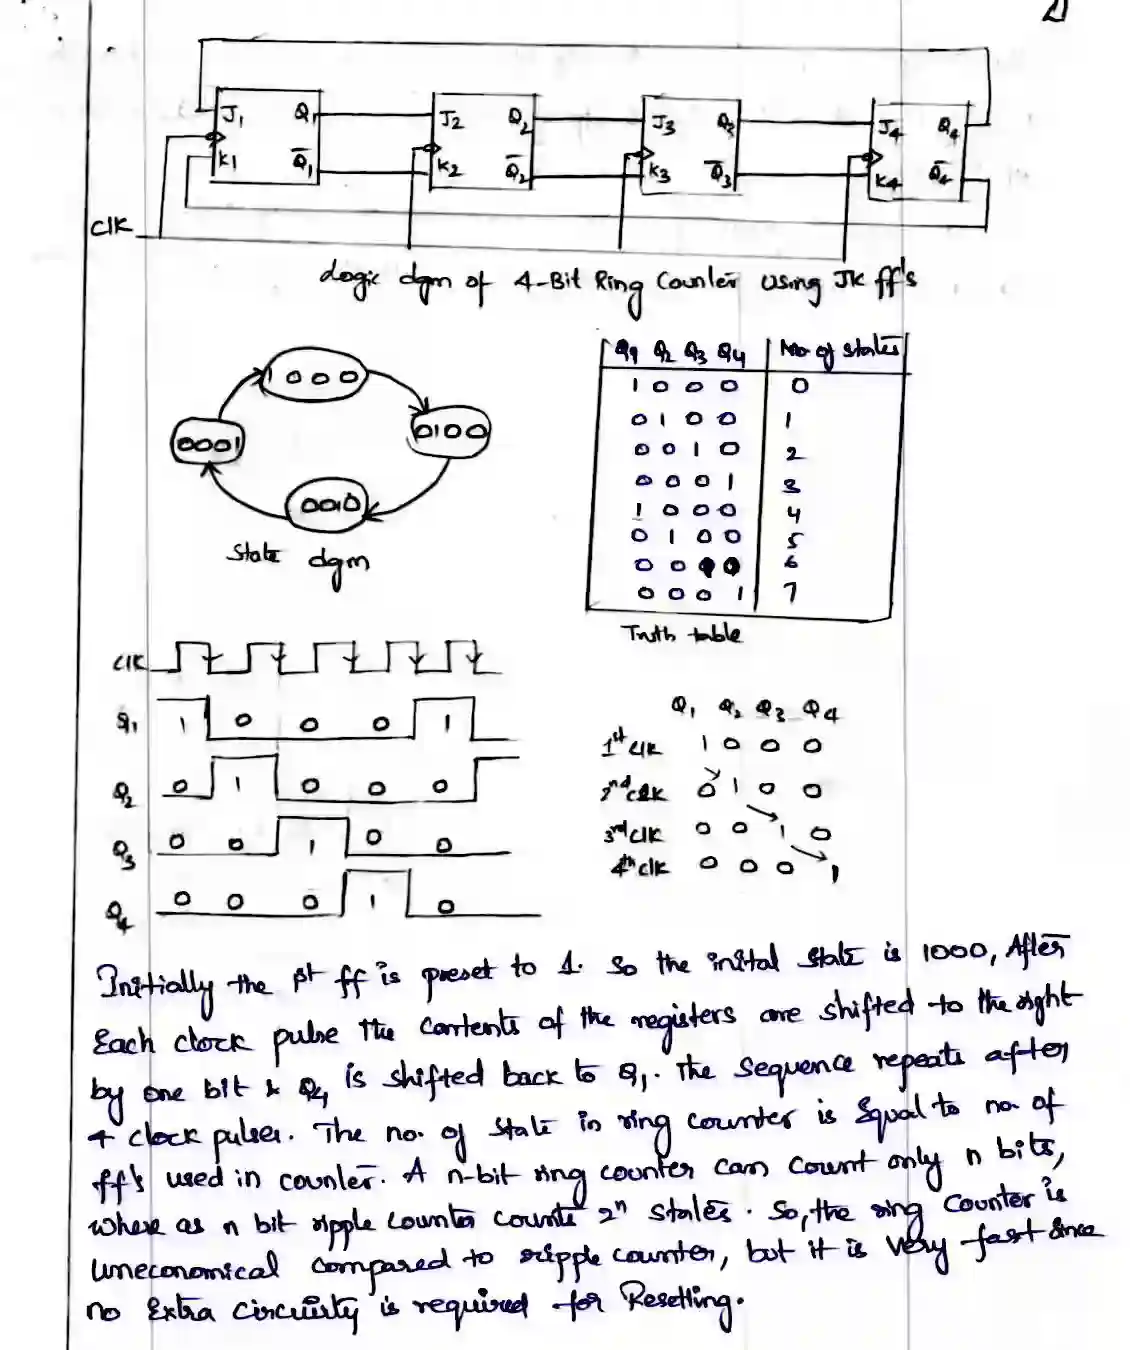 J1 Q1 J2 Q2 J3 Q3 J4 Q4
K1 Q̅1 K2 Q̅2 K3 Q̅3 K4 Q̅4
Clk
Logic dgm of 4-Bit Ring Counter using JK ff's
1000
0001
0100
0010
State dgm
Q1 Q2 Q3 Q4 No of states
1 0 0 0 0
0 1 0 0 1
0 0 1 0 2
0 0 0 1 3
1 0 0 0 4
0 1 0 0 5
0 0 0 6
0 0 0 1 7
Truth table
Clk
Q1 1 0 0 0 1
Q2 0 1 0 0 0
Q3 0 0 1 0 0
Q4 0 0 0 1 0
Q1 Q2 Q3 Q4
1st clk 1 0 0 0
2nd clk 0 1 0 0
3rd clk 0 0 1 0
4th clk 0 0 0 1
Initially the 1st ff is preset to 1. So the inital state is 1000, After
Each clock pulse the contents of the registers are shifted to the right
by one bit & Q4 is shifted back to Q1. The sequence repeats after
4 clock pulses. The no. of state in ring counter is Equal to no. of
ff's used in counter. A n-bit ring counter can count only n bits,
where as n bit ripple counter counts 2ⁿ states. So, the ring counter is
uneconomical compared to ripple counter, but it is very fast since
no Extra circuitry is required for Resetting.